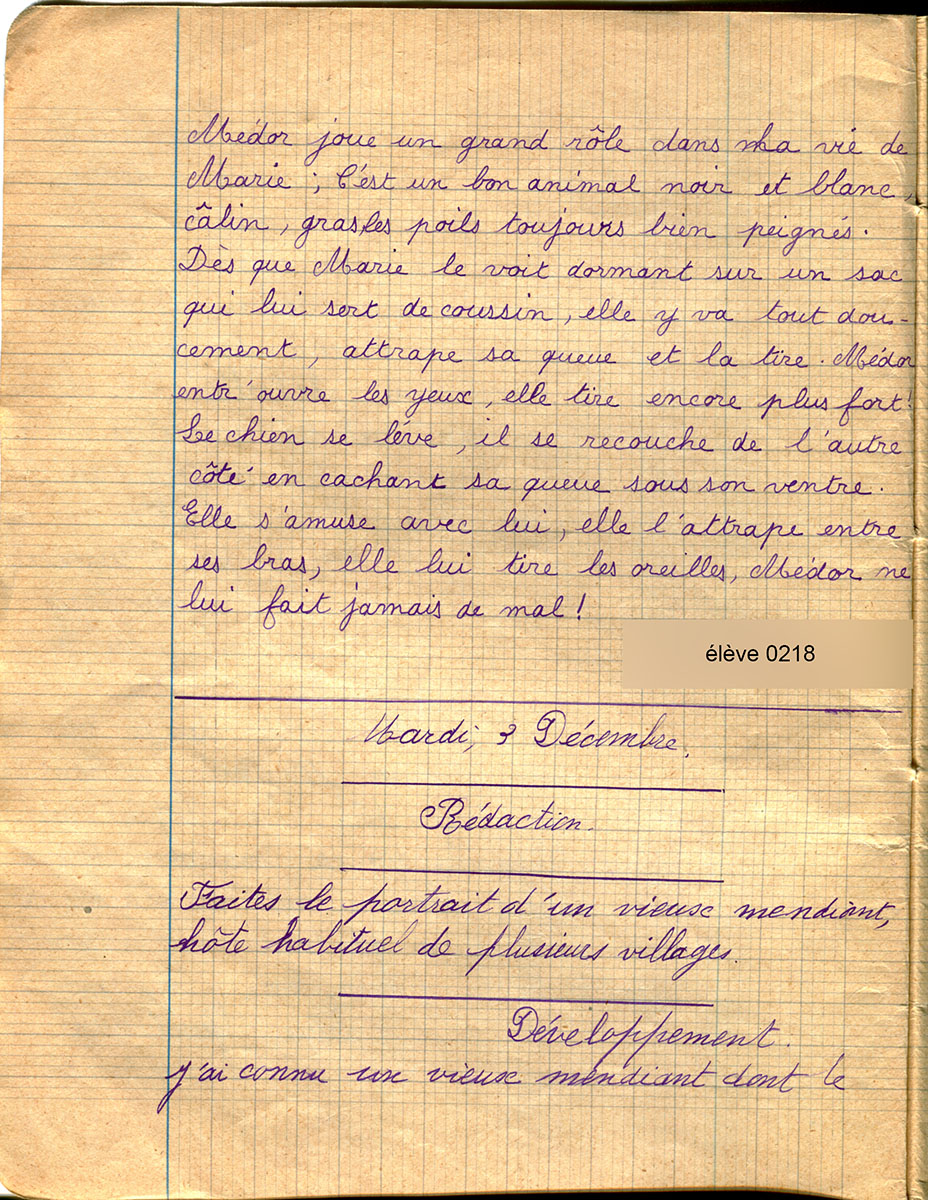 Médor joue un grand rôle dans la vie de
Marie ; C'est un bon animal noir et blanc,
câlin, gras, les poils toujours bien peignés.
Dès que Marie le voit dormant sur un sac
qui lui sert de coussin, elle y va tout dou-
cement, attrape sa queue et la tire. Médor
entr'ouvre les yeux, elle tire encore plus fort!
Le chien se lève, il se recouche de l'autre
côté en cachant sa queue sous son ventre.
Elle s'amuse avec lui, elle l'attrape entre
ses bras, elle lui tire les oreilles, Médor ne
lui fait jamais de mal !
élève 0218
Mardi, 3 Décembre.
Rédaction.
Faites le portrait d'un vieux mendiant,
hôte habituel de plusieurs villages.
Développement.
J'ai connu un vieux mendiant dont le